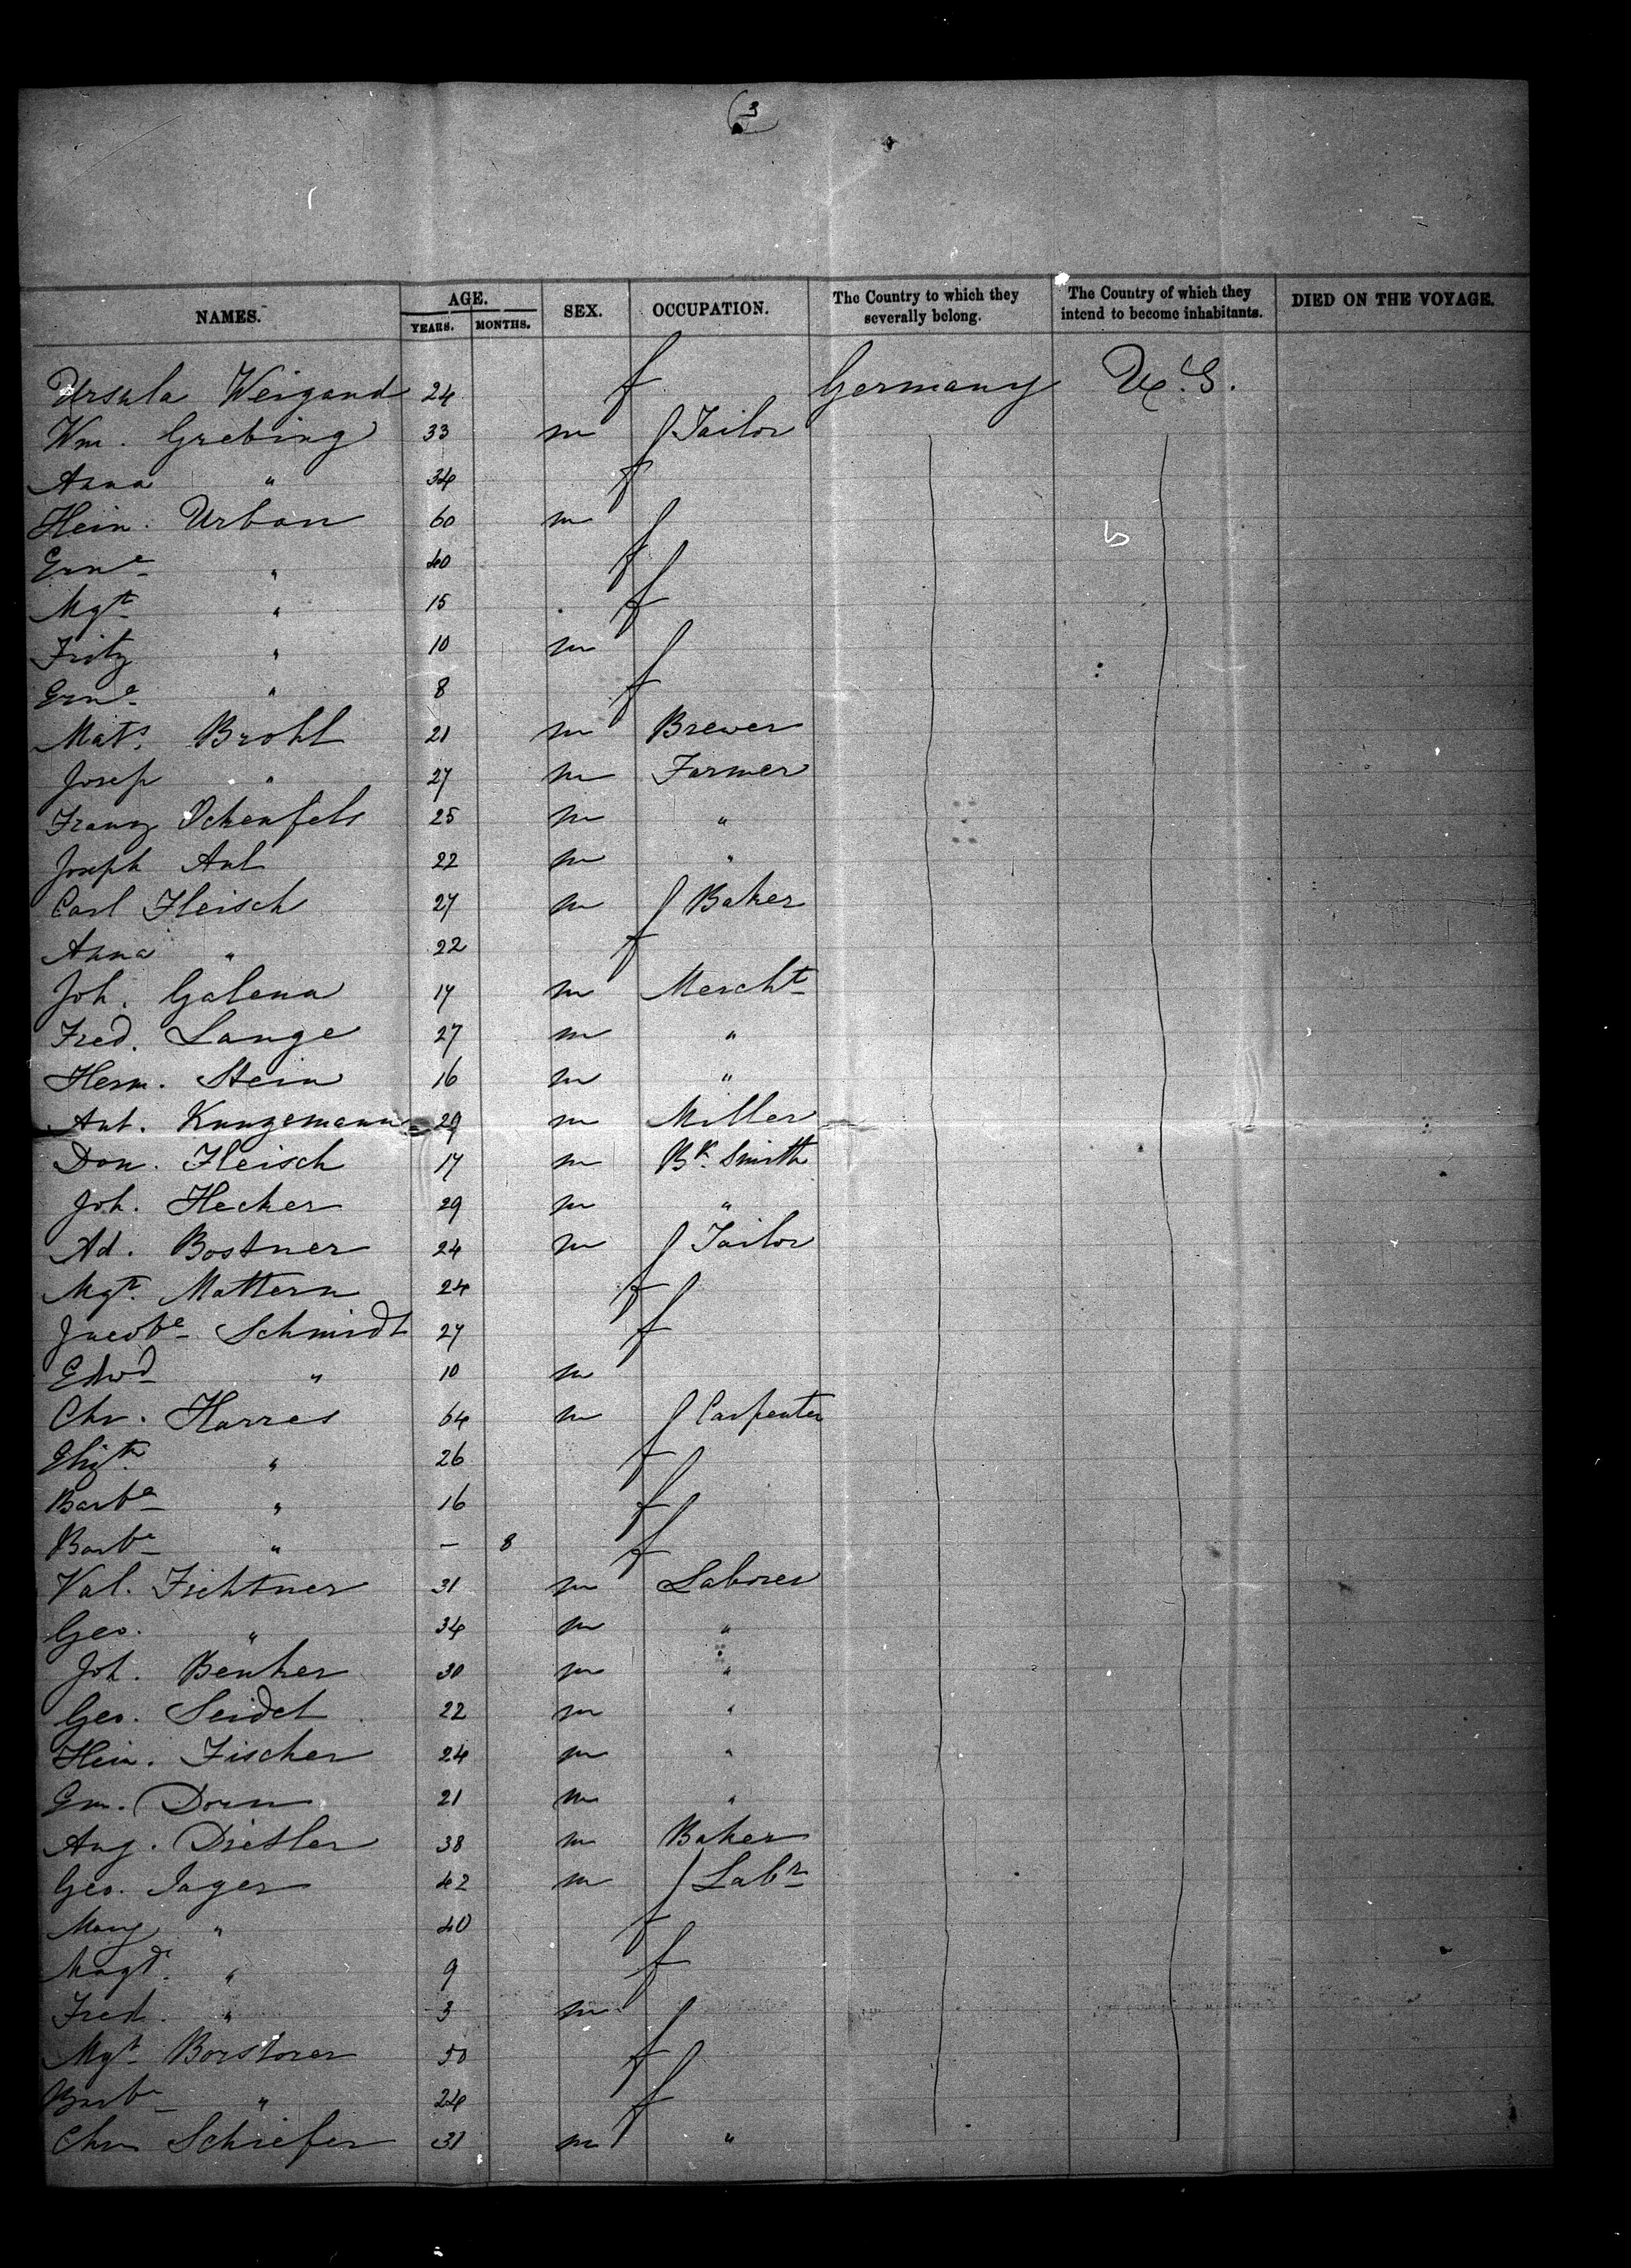 3
NAMES. AGE. YEARS. MONTHS. SEX. OCCUPATION. The Country to which they severally belong. The Country of which they intend to become inhabitants. DIED ON THE VOYAGE.
Ursula Weigand 24 f Germany U.S.
Wm. Grebing 33 m Tailor
Anna " 34 f
Hein. Urban 60 m
Erne " 40 f
Mgt " 15 f
Fritz " 10 m
Erne " 8 f
Mats. Brohl 21 m Brewer
Josep " 27 m Farmer
Franz Ockenfels 25 m "
Joseph Ant 22 m "
Carl Fleisch 27 m Baker
Anna " 22 f
Joh. Galena 17 m Mercht
Fred. Lange 27 m "
Herm. Stein 16 m "
Ant. Kunzemann 29 m Miller
Don. Fleisch 17 m Bk. Smith
Joh. Hecker 29 m "
Ad. Bostner 24 m Tailor
Mgt. Mattern 24 f
Jacobe Schmidt 27 f
Edwd " 10 m
Chr. Harres 64 m Carpenter
Elizth " 26 f
Barba " 16 f
Barba " — 8 f
Val. Fichtner 31 m Laborer
Geo. " 34 m "
Joh. Benker 30 m "
Geo. Seidel 22 m "
Hein. Fischer 24 m "
Em. Dorn 21 m "
Aug. Distler 38 m Baker
Geo. Jager 42 m Labr
Marg " 40 f
Magd. " 9 f
Fred. " 3 m
Mgt Borstorer 50 f
Barba " 24 f
Chr Schiefer 31 m "